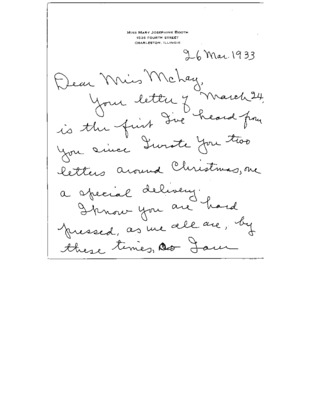 MISS MARY JOSEPHINE BOOTH
1536 FOURTH STREET
CHARLESTON, ILLINOIS
26 Mar. 1933
Dear Miss McKay,
Your letter of March 24,
is the first I've heard from
you since I wrote you two
letters around Christmas, one
a special delivery.
I know you are hard
pressed, as we all are, by
these times, so I am